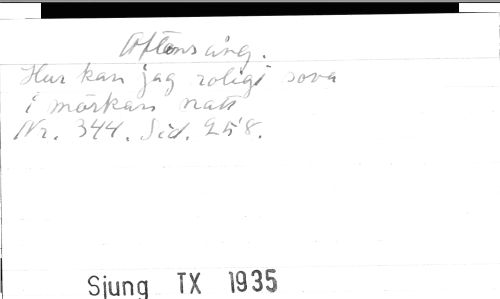 Aftonsång.
Hur kan jag roligt sova
i mörkan natt
Nr. 344. Sid. 258.
Sjung TX 1935